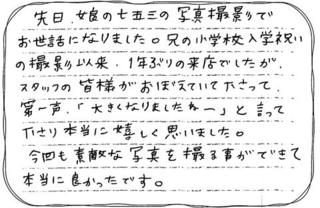 先日、娘の七五三の写真撮影で
お世話になりました。兄の小学校入学祝い
の撮影以来、1年ぶりの来店でしたが、
スタッフの皆様がおぼえていて下さって、
第一声、「大きくなりましたねー」と言って
下さり本当に嬉しく思いました。
今回も素敵な写真を撮る事ができて
本当に良かったです。